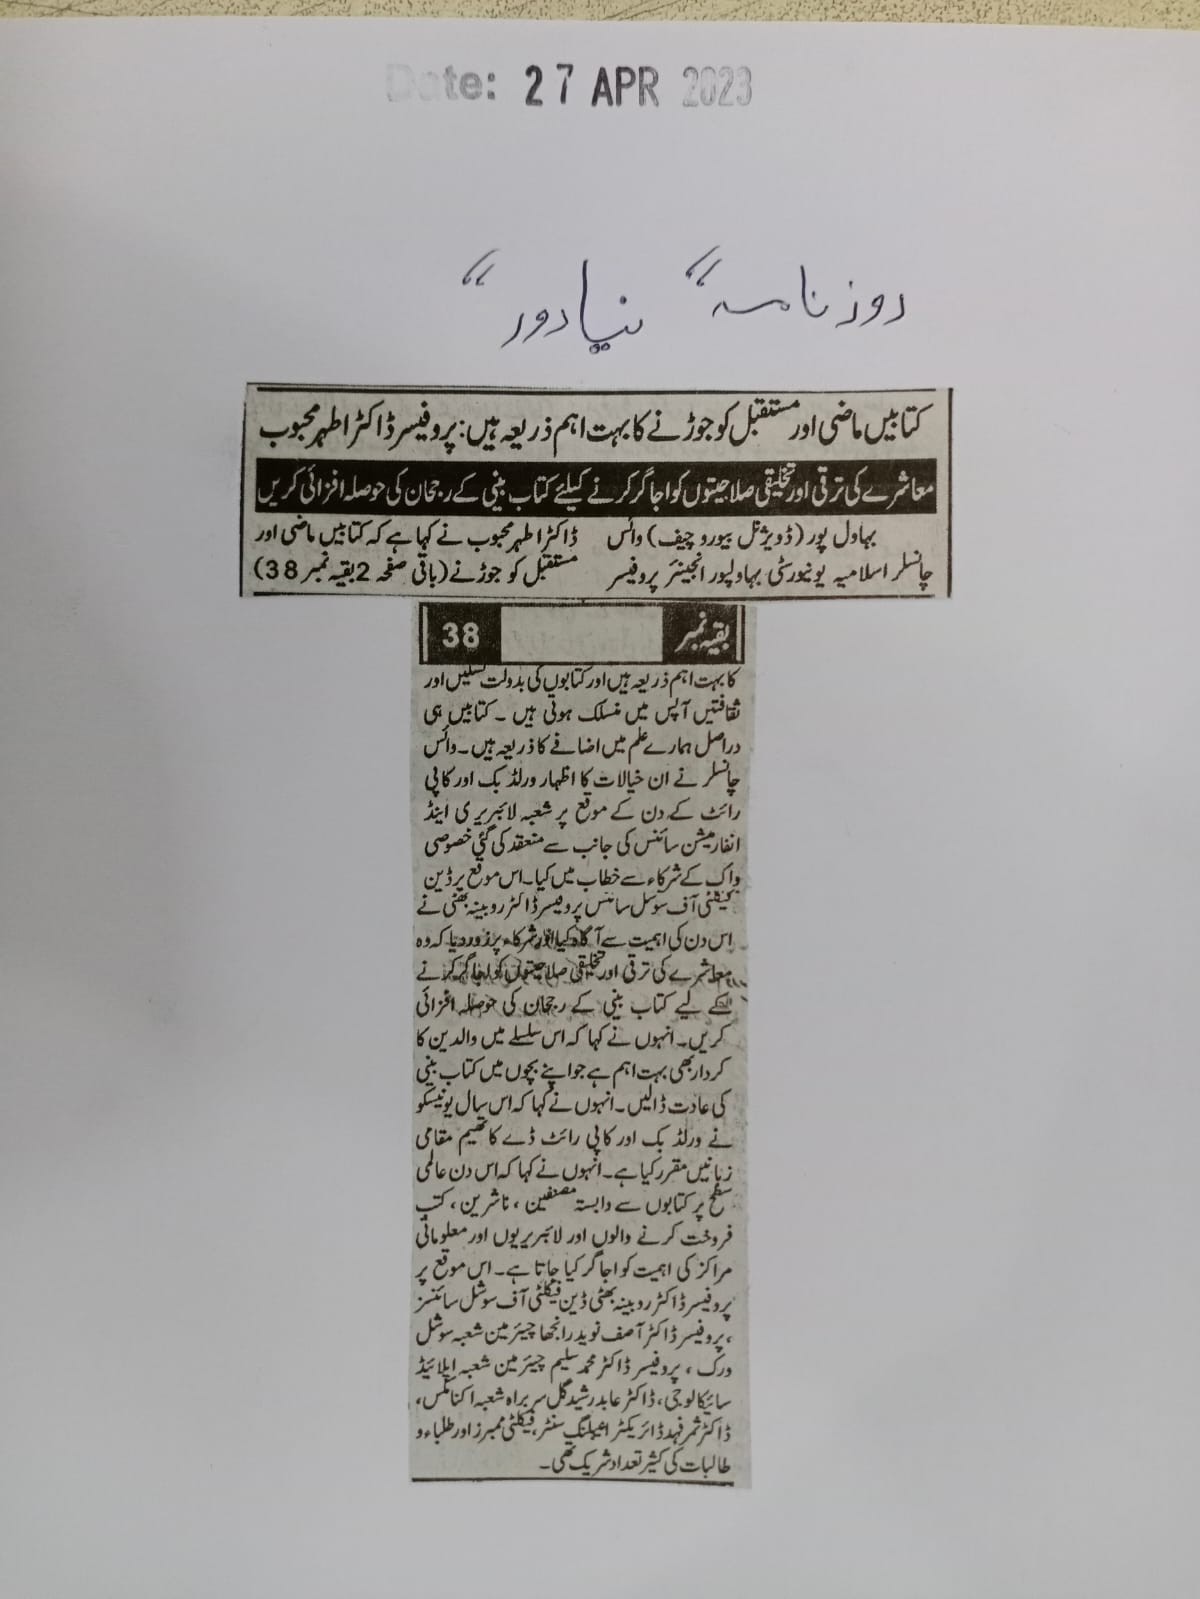 Date: 27 APR 2023
روزنامہ "نیا دور"
کتابیں ماضی اور مستقبل کو جوڑنے کا بہت اہم ذریعہ ہیں: پروفیسر ڈاکٹر اطہر محبوب
معاشرے کی ترقی اور تخلیقی صلاحیتوں کو اجاگر کرنے کیلئے کتاب بینی کے رجحان کی حوصلہ افزائی کریں
بہاول پور (ڈویژنل بیورو چیف) وائس
چانسلر اسلامیہ یونیورسٹی بہاولپور انجینئر پروفیسر
ڈاکٹر اطہر محبوب نے کہا ہے کہ کتابیں ماضی اور
مستقبل کو جوڑنے (باقی صفحہ 2 بقیہ نمبر 38)
بقیہ نمبر 38
کا بہت اہم ذریعہ ہیں اور کتابوں کی بدولت نسلیں اور
ثقافتیں آپس میں منسلک ہوتی ہیں ۔ کتابیں ہی
دراصل ہمارے علم میں اضافے کا ذریعہ ہیں ۔ وائس
چانسلر نے ان خیالات کا اظہار ورلڈ بک اور کاپی
رائٹ کے دن کے موقع پر شعبہ لائبریری اینڈ
انفارمیشن سائنس کی جانب سے منعقد کی گئی خصوصی
واک کے شرکاء سے خطاب میں کیا۔ اس موقع پر ڈین
فیکلٹی آف سوشل سائنس پروفیسر ڈاکٹر روبینہ بھٹی نے
اس دن کی اہمیت سے آگاہ کیا اور شرکاء پر زور دیا کہ وہ
معاشرے کی ترقی اور تخلیقی صلاحیتوں کو اجاگر کرنے
کے لیے کتاب بینی کے رجحان کی حوصلہ افزائی
کریں۔ انہوں نے کہا کہ اس سلسلے میں والدین کا
کردار بھی بہت اہم ہے جو اپنے بچوں میں کتاب بینی
کی عادت ڈالیں ۔ انہوں نے کہا کہ اس سال یونیسکو
نے ورلڈ بک اور کاپی رائٹ ڈے کا تھیم مقامی
زبانیں مقرر کیا ہے۔ انہوں نے کہا کہ اس دن عالمی
سطح پر کتابوں سے وابستہ مصنفین ، ناشرین ، کتب
فروخت کرنے والوں اور لائبریریوں اور معلوماتی
مراکز کی اہمیت کو اجاگر کیا جاتا ہے۔ اس موقع پر
پروفیسر ڈاکٹر روبینہ بھٹی ڈین فیکلٹی آف سوشل سائنسز
، پروفیسر ڈاکٹر آصف نوید رانجھا چیئرمین شعبہ سوشل
ورک ، پروفیسر ڈاکٹر محمد سلیم چیئرمین شعبہ اپلائیڈ
سائیکالوجی ، ڈاکٹر عابد رشید گل سربراہ شعبہ اکنامکس،
ڈاکٹر ثمر فہد ڈائریکٹر ایمپلنگ سنٹر، فیکلٹی ممبرز اور طلباء و
طالبات کی کثیر تعداد شریک تھی ۔